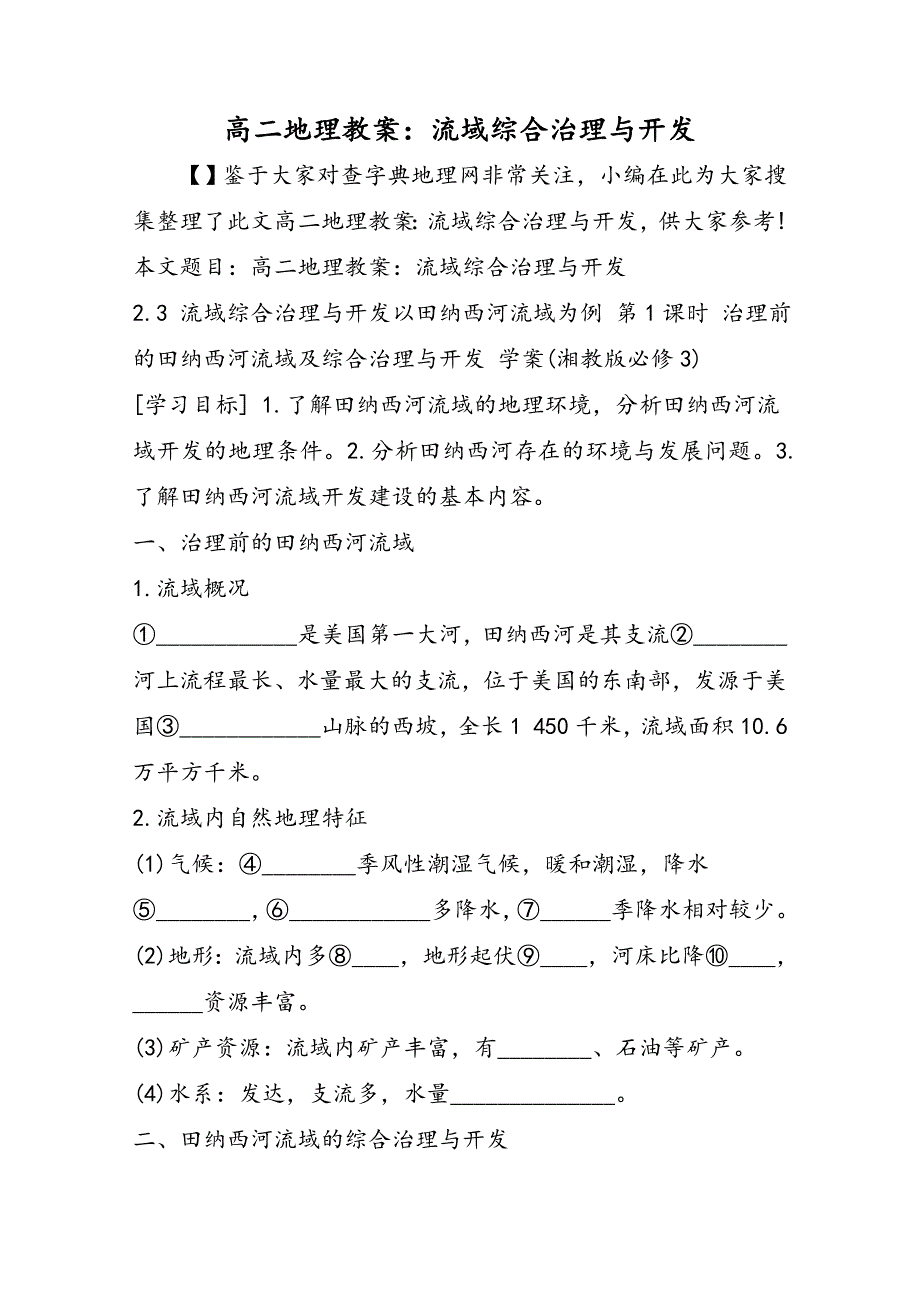 高二地理教案：流域综合治理与开发
【】鉴于大家对查字典地理网非常关注，小编在此为大家搜
集整理了此文高二地理教案：流域综合治理与开发，供大家参考!
本文题目：高二地理教案：流域综合治理与开发
2.3 流域综合治理与开发以田纳西河流域为例 第1课时 治理前
的田纳西河流域及综合治理与开发 学案(湘教版必修3)
[学习目标] 1.了解田纳西河流域的地理环境，分析田纳西河流
域开发的地理条件。2.分析田纳西河存在的环境与发展问题。3.
了解田纳西河流域开发建设的基本内容。
一、治理前的田纳西河流域
1.流域概况
①____________是美国第一大河，田纳西河是其支流②________
河上流程最长、水量最大的支流，位于美国的东南部，发源于美
国③____________山脉的西坡，全长1 450千米，流域面积10.6
万平方千米。
2.流域内自然地理特征
(1)气候：④________季风性潮湿气候，暖和潮湿，降水
⑤________，⑥____________多降水，⑦______季降水相对较少。
(2)地形：流域内多⑧____，地形起伏⑨____，河床比降⑩____，
______资源丰富。
(3)矿产资源：流域内矿产丰富，有________、石油等矿产。
(4)水系：发达，支流多，水量______________。
二、田纳西河流域的综合治理与开发